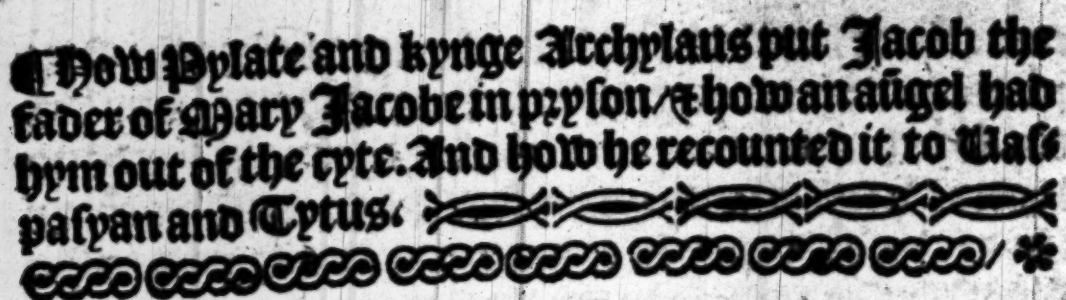 ¶ How Pylate and kynge Archylaus put Jacob the
fader of Mary Jacobe in pryſon/ & how an aūgel had
hym out of the cyte. And how he recounted it to Uaſ⸗
paſyan and Tytus.